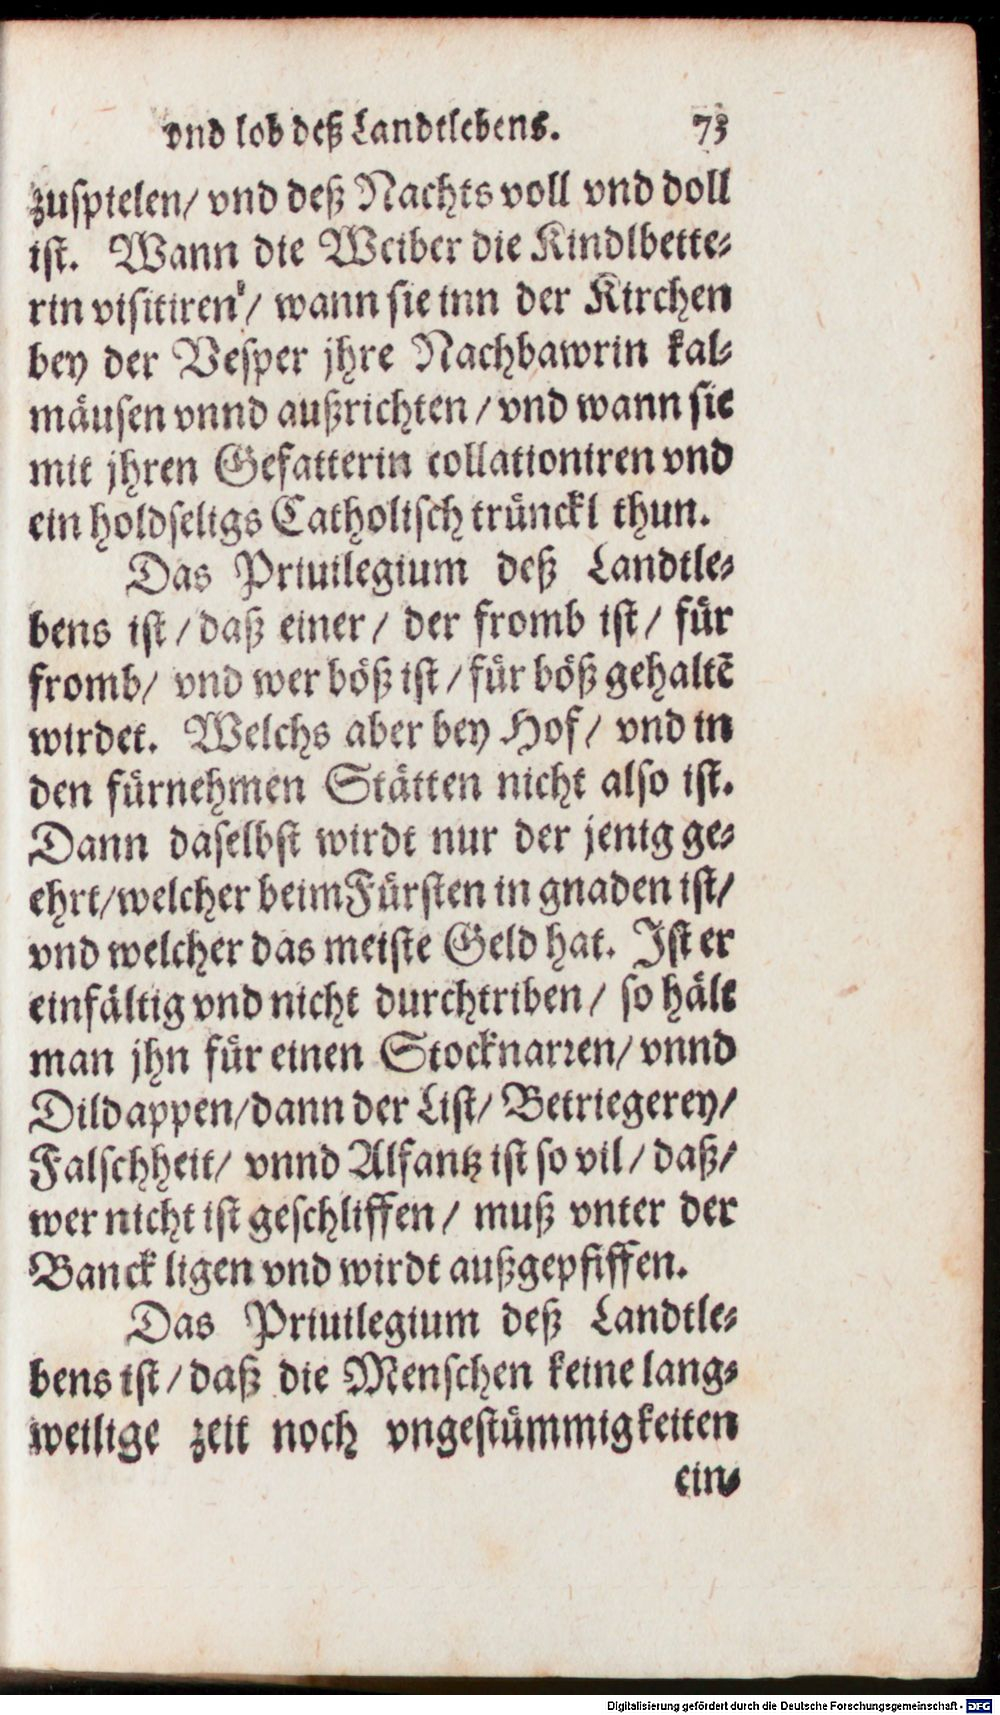 vnd lob deß Landtlebens. 73
zuspielen/ vnd deß Nachts voll vnd doll
ist. Wann die Weiber die Kindlbette-
rin visitiren/ wann sie inn der Kirchen
bey der Vesper jhre Nachbawrin kal-
mäusen vnnd außrichten/ vnd wann sie
mit jhren Gefatterin collationiren vnd
ein holdseligs Catholisch trünckl thun.
Das Priuilegium deß Landtle-
bens ist/ daß einer/ der fromb ist/ für
fromb/ vnd wer böß ist/ für böß gehaltẽ
wirdet. Welchs aber bey Hof/ vnd in
den fürnehmen Stätten nicht also ist.
Dann daselbst wirdt nur der jenig ge-
ehrt/welcher beim Fürsten in gnaden ist/
vnd welcher das meiste Geld hat. Ist er
einfältig vnd nicht durchtriben/ so hält
man jhn für einen Stocknarren/ vnnd
Dildappen/dann der List/ Betriegerey/
Falschheit/ vnnd Alfantz ist so vil/ daß/
wer nicht ist geschliffen/ muß vnter der
Banck ligen vnd wirdt außgepfiffen.
Das Priuilegium deß Landtle-
bens ist/ daß die Menschen keine lang-
weilige zeit noch vngestümmigkeiten
ein-
Digitalisierung gefördert durch die Deutsche Forschungsgemeinschaft - DFG